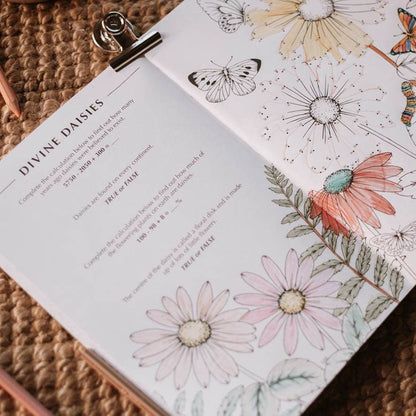 DIVINE DAISIES
Complete the calculation below to find out how many
years ago daisies were believed to exist.
5750 - 2050 + 300 =
Daisies are found on every continent.
TRUE or FALSE
Complete the calculation below to find out how much of
the flowering plants on earth are daisies.
100 - 98 + 8 = ..... %
The centre of the daisy is called a floral disk and is made
up of lots of little flowers.
TRUE or FALSE